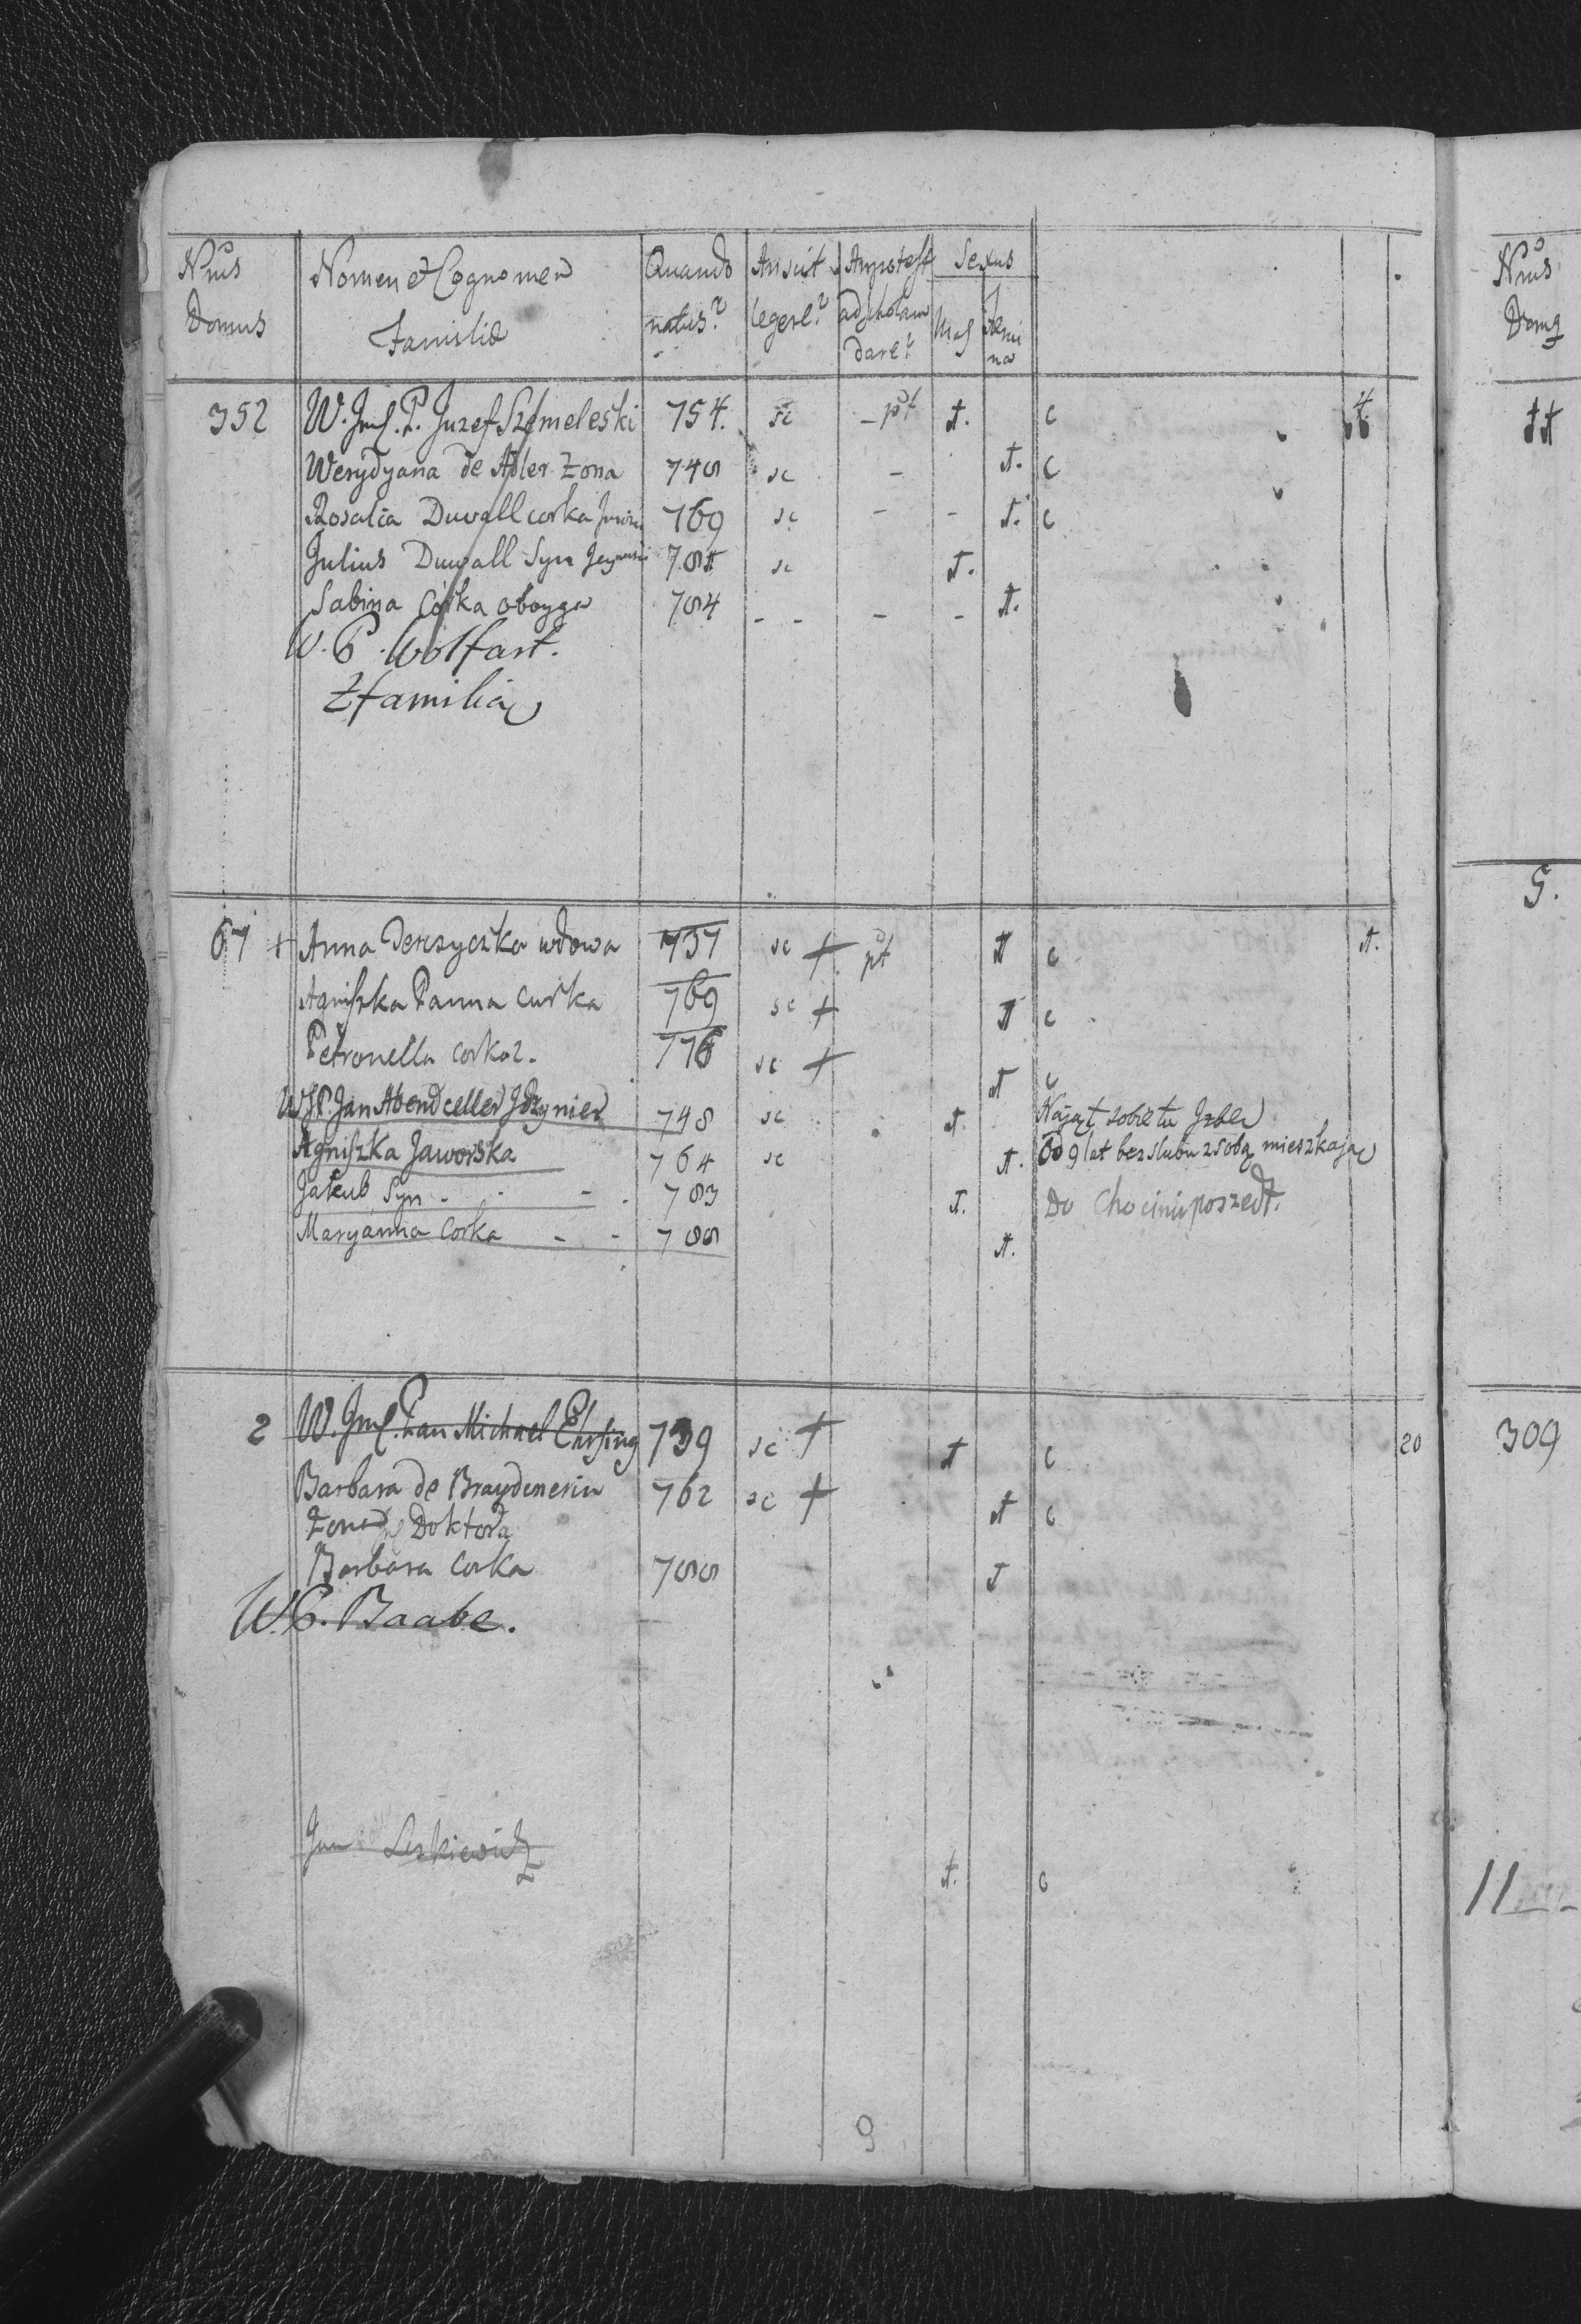 Nrus Domus Nomen et Cognomen Familiæ Quando natus? An scit legere? An potest ad scholam dare? Sexus Mas Femina
352 W. Jmć. P. Juzef Szemeleski 754. sc - pt 1. c 4
Werydyana de Adler Zona 748 sc - 1. c
Rosalia Duwall corka 769 sc - - 1. c
Julius Duwall Syn 781 sc 1.
Sabina Córka oboyga 784 - - - - 1.
W. P. Wolfart.
Z familią
67 + Anna Derczyczka wdowa 737 sc + pt 1 c 1.
Agniszka Panna curka 769 sc + 1 c
Petronella corka 2. 776 sc + 1 c
W. J. P. Jan Abendceller Jżynier 748 sc 1. Najął sobie tu Jzbę
Agniszka Jaworska 764 sc 1. Od 9 lat bez slubu z sobą mieszkają
Jakub Syn - - 783 1. Do Chocimu poszedł.
Maryanna Corka - - 788 1.
2 W. Jmć. Pan Michael Ehrsing 739 sc + 1 c 20
Barbara de Braydenerin 762 sc + 1 c
Zona Doktora
Barbara Corka 788 1
W. P. Baabe.
Jan Leskiewicz 1. c
9
Nrus
Domq
11
5.
309
11